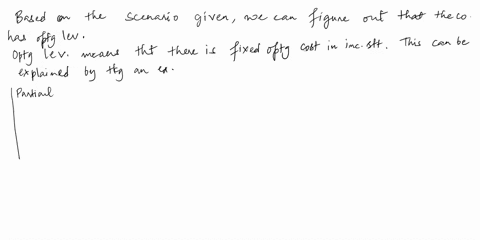 Based on the scenario given, we can figure out that the co.
has optg lev.
Optg lev. means tht there is fixed optg cost in inc. stt. This can be
explained by tkg an ex.
Partial